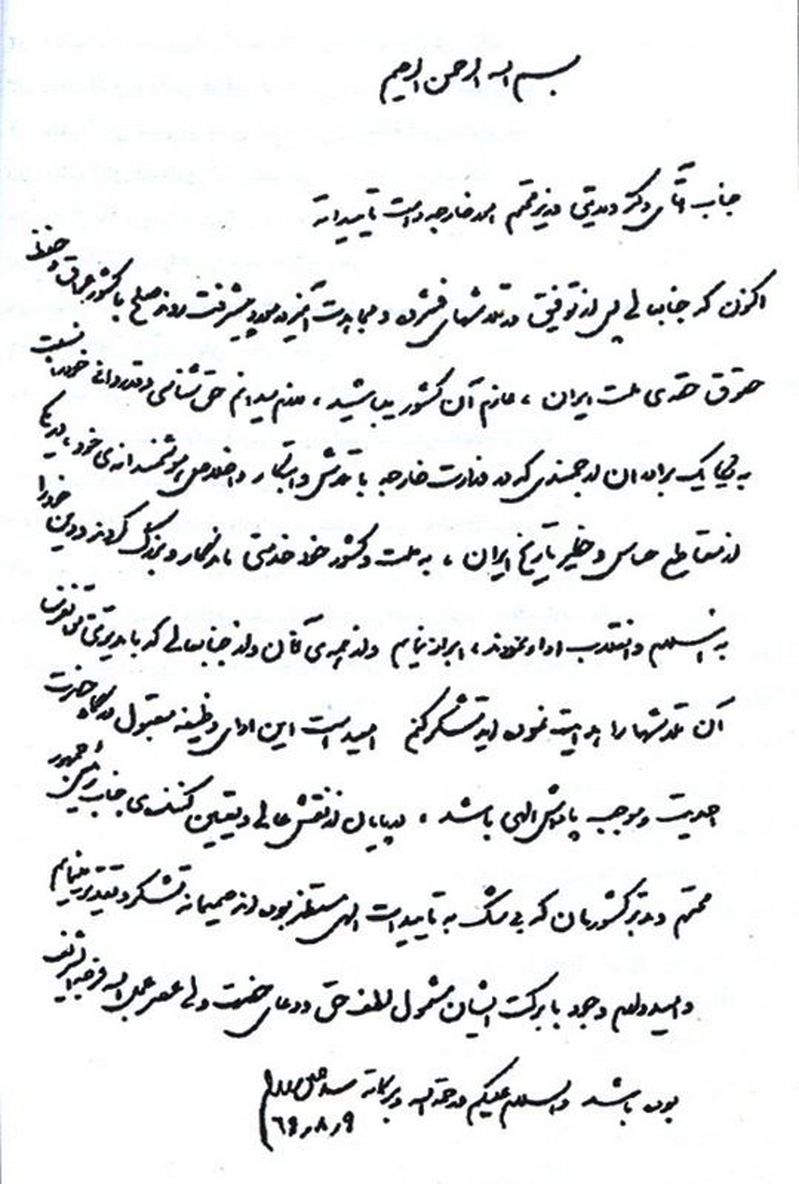 بسم الله الرحمن الرحیم
جناب آقای دکتر ولایتی وزیر محترم امور خارجه دامت تاییداته
اکنون که جنابعالی پس از توفیق در تلاشهای فشرده و مجاهدت‌آمیز در مورد پیشرفت روند صلح با کشور عراق و حفظ
حقوق حقه‌ی ملت ایران ، عازم آن کشور میباشید ، لازم میدانم حق‌شناسی و قدردانی خود را نسبت
به یکایک برادران ارجمندی که در وزارت خارجه با تلاش و ابتکار و اخلاص هوشمندانه‌ی خود ، در یکی
از مقاطع حساس و خطیر تاریخ ایران ، به ملت و کشور خود خدمتی ماندگار و بزرگ کردند و دین خود را
به اسلام و انقلاب ادا نمودند ، ابراز نمایم و از همه‌ی آنان و از جنابعالی که با مدیریتی
آن تلاشها را هدایت نموده اید تشکر کنم امید است این ادای وظیفه مقبول درگاه حضرت
احدیت و موجب پاداش الهی باشد . در پایان از نقش عالی و تعیین کننده‌ی جناب رئیس جمهور
محترم و مدبر کشورمان که بی شک به تاییدات الهی مستظهر بوده اند صمیمانه تشکر و تقدیر مینمایم
و امیدوارم وجود با برکت ایشان مشمول لطف حق و دعای حضرت ولی عصر عجل الله فرجه الشریف
بوده باشد والسلام علیکم و رحمة الله و برکاته سید علی خامنه‌ای
۶۹٫۸٫۹